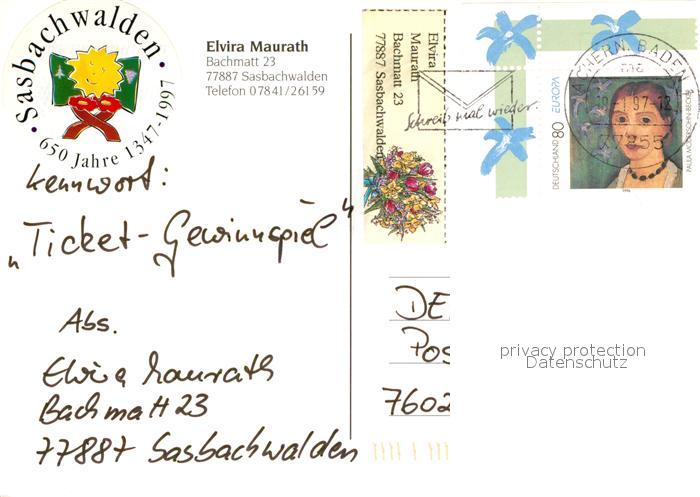 Sasbachwalden
650 Jahre 1347-1997
Elvira Maurath
Bachmatt 23
77887 Sasbachwalden
Telefon 07841/26159
Kennwort:
„Ticket-Gewinnspiel"
Abs.
Elvira Maurath
Bachmatt 23
77887 Sasbachwalden
Elvira
Maurath
Bachmatt 23
77887 Sasbachwalden
Schreib mal wieder.
ACHERN, BADEN
97-12
77855
DEUTSCHLAND 80 EUROPA
PAULA MODERSOHN-BECKER
1996
DE
Pos
7602
privacy protection
Datenschutz